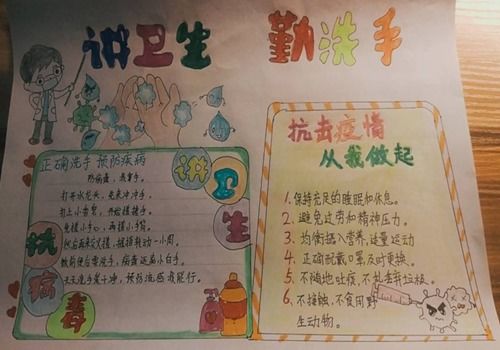 讲卫生 勤洗手
正确洗手 预防疾病
防病毒，洗着手。
打开水龙头，先来冲冲手，
打上小香皂，开始搓搓手，
先搓小手心，再搓小手背，
病菌逃离小白手。
天天洗手爱干净，预防流感我能行。
讲卫生
抗病毒
抗击疫情
从我做起
1. 保持充足的睡眠和休息。
2. 避免过劳和精神压力。
3. 均衡摄入营养，适量运动
4. 正确配戴口罩及时更换。
5. 不随地吐痰，不扎丢垃圾。
6. 不接触、不食用野
生动物。